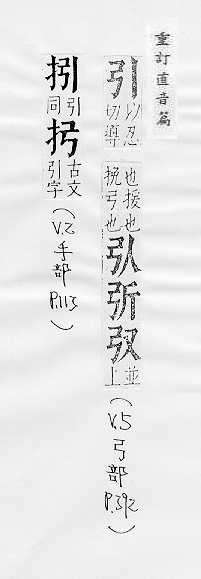 重訂直音篇
引以忍切導也援也挽弓也並上(V.5弓部P.392)
引同古文引字(V.2手部P.113)